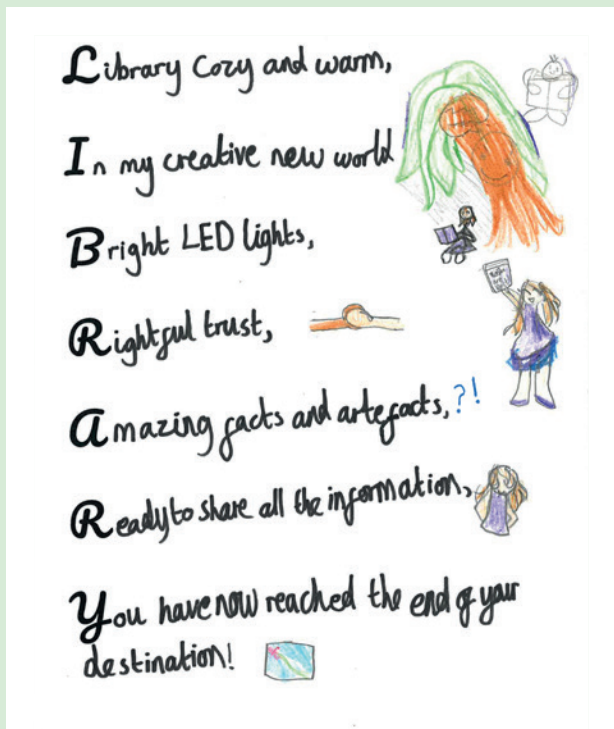 Library Cozy and warm,
In my creative new world
Bright LED lights,
Rightful trust,
Amazing facts and artefacts,?!
Ready to share all the information,
You have now reached the end of your
destination!